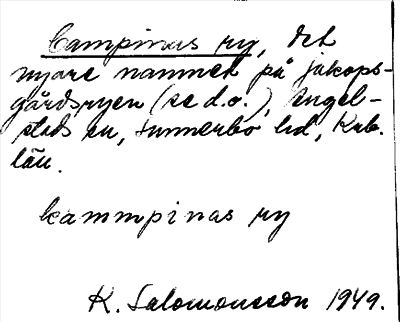 Campinas ry, det
nyare namnet på jakops-
gårdsryen (se d.o.), Angel-
stads sn, Sunnerbo hd, Krb.
län.
kammpinas ry
K. Salomonsson 1949.